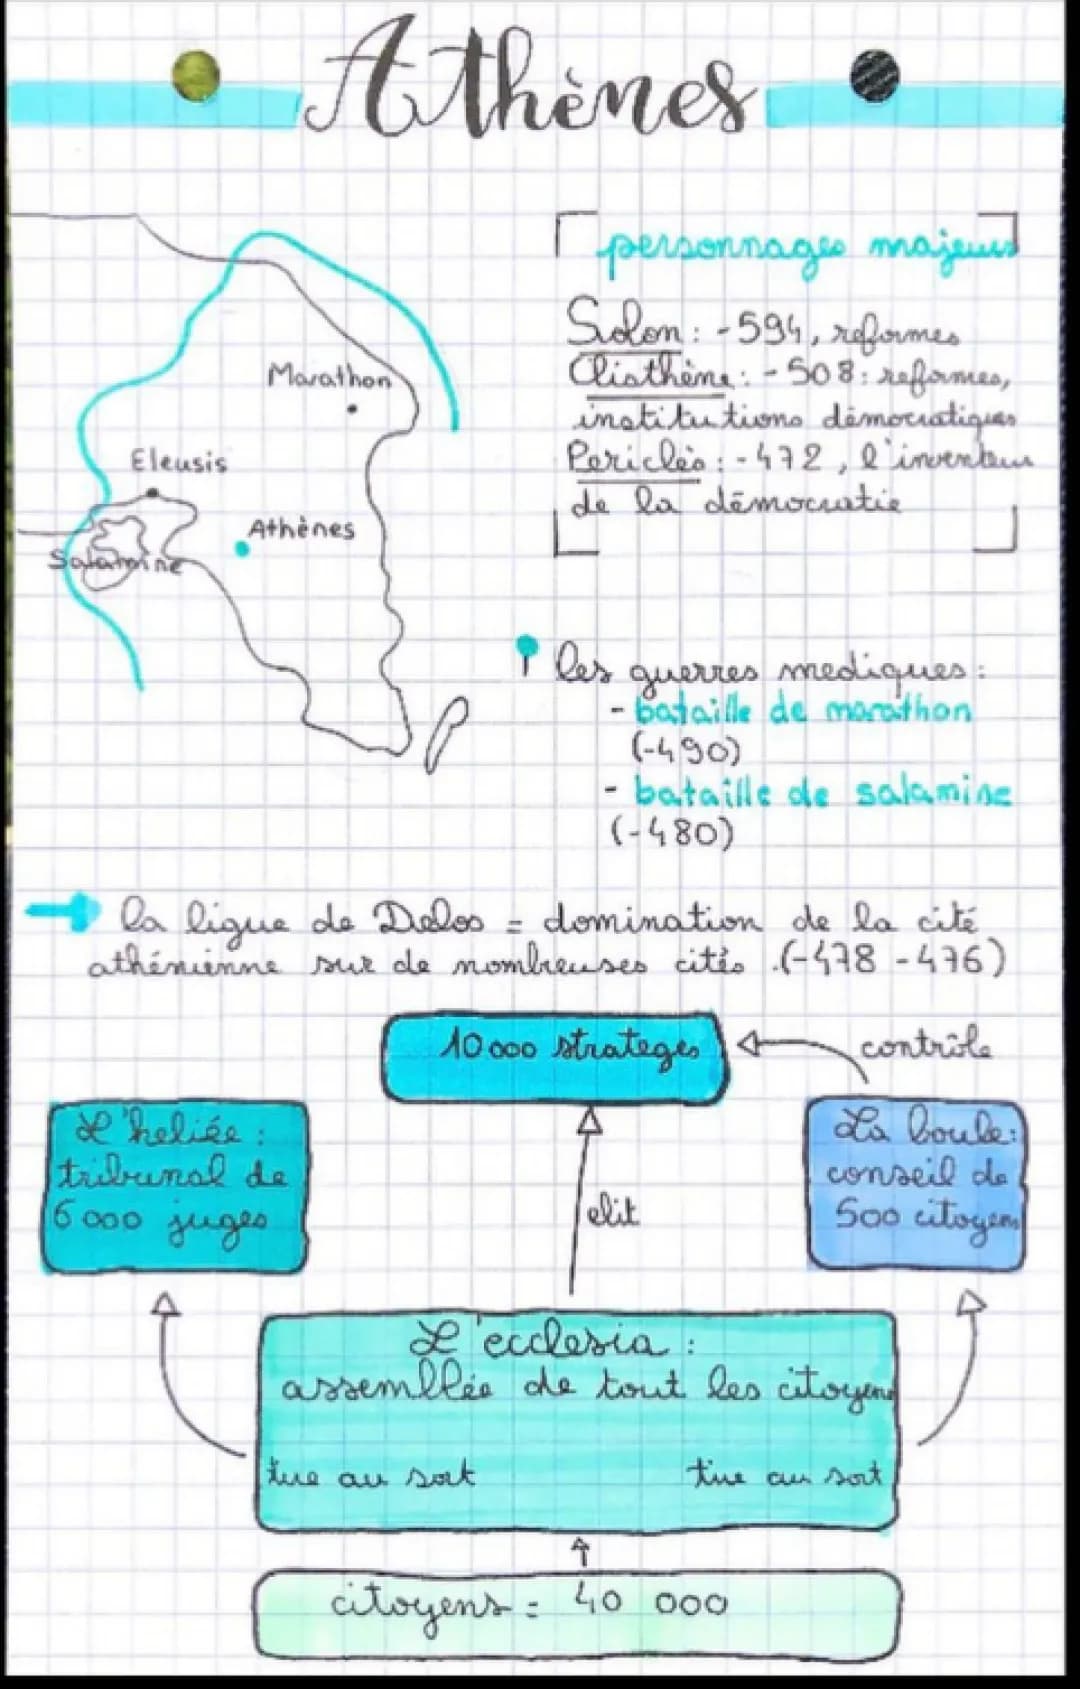 Athènes
personnages majeurs
Solon : -594, reformes
Clisthène : -508 : reformes,
institutions démocratiques
Periclès : -472, l'inventeur
de la démocratie
Marathon
Eleusis
Athènes
Salamine
les guerres mediques :
- bataille de marathon
(-490)
- bataille de salamine
(-480)
la ligue de Delos = domination de la cité
athénienne sur de nombreuses cités (-478 -476)
10 000 strateges
contrôle
L'heliée :
tribunal de
6 000 juges
elit
La boule :
conseil de
500 citoyens
L'ecclesia :
assemblée de tout les citoyens
tire au sort
tire au sort
citoyens = 40 000